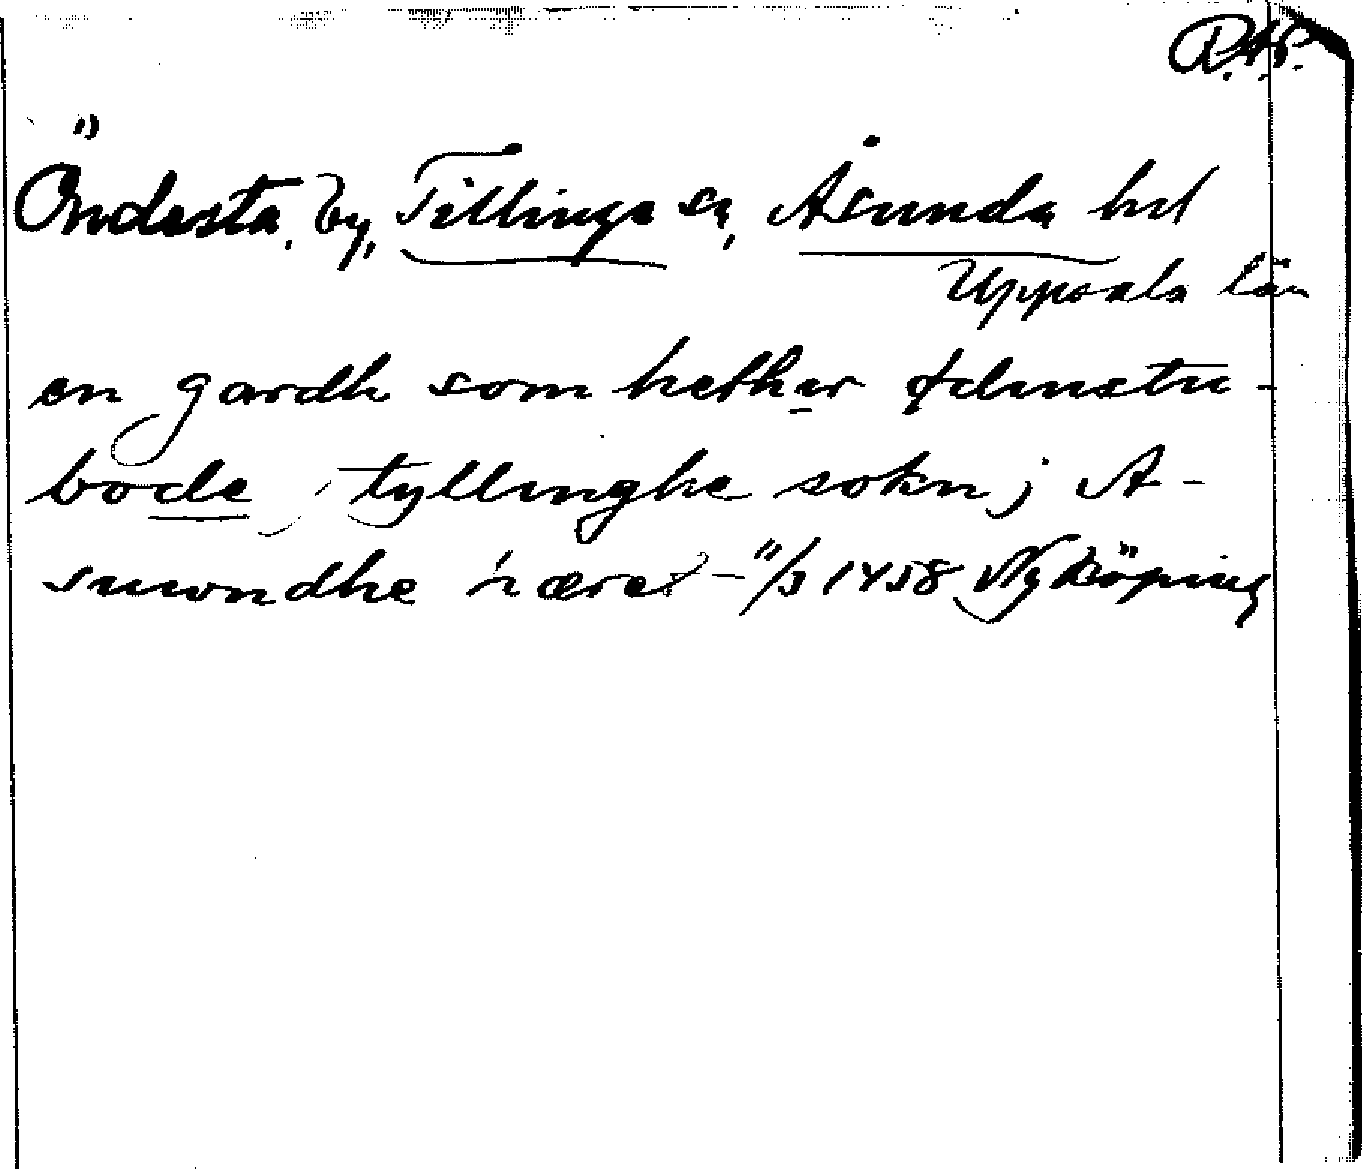 Öndesta, by, Tillinge sn, Åsunda hd
Uppsala län
en gardh som hether
bode, j tyllinghe sokn j A-
swndhe hæret – 11/3 1458 Nyköping